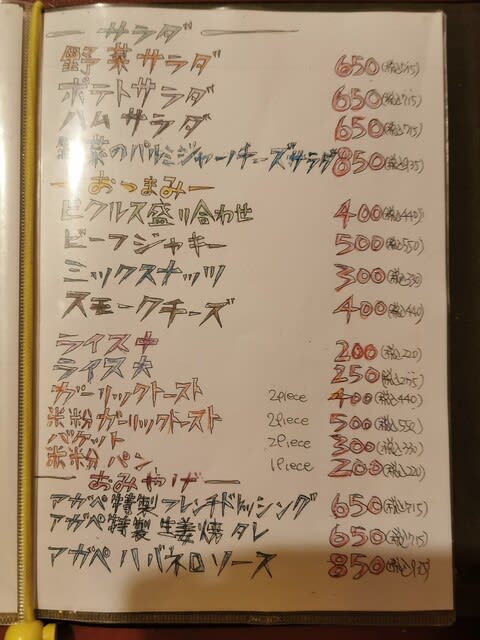 サラダ
野菜サラダ 650(税込715)
ポテトサラダ 650(税込715)
ハムサラダ 650(税込715)
野菜のパルミジャーノチーズサラダ 850(税込935)
おつまみ
ピクルス盛り合わせ 400(税込440)
ビーフジャキー 500(税込550)
ミックスナッツ 300(税込330)
スモークチーズ 400(税込440)
ライス中 200(税込220)
ライス大 250(税込275)
ガーリックトースト 2piece 400(税込440)
米粉ガーリックトースト 2piece 500(税込550)
バゲット 2piece 300(税込330)
米粉パン 1piece 200(税込220)
おみやげ
アガペ特製フレンチドレッシング 650(税込715)
アガペ特製生姜焼タレ 650(税込715)
アガペハバネロソース 850(税込935)